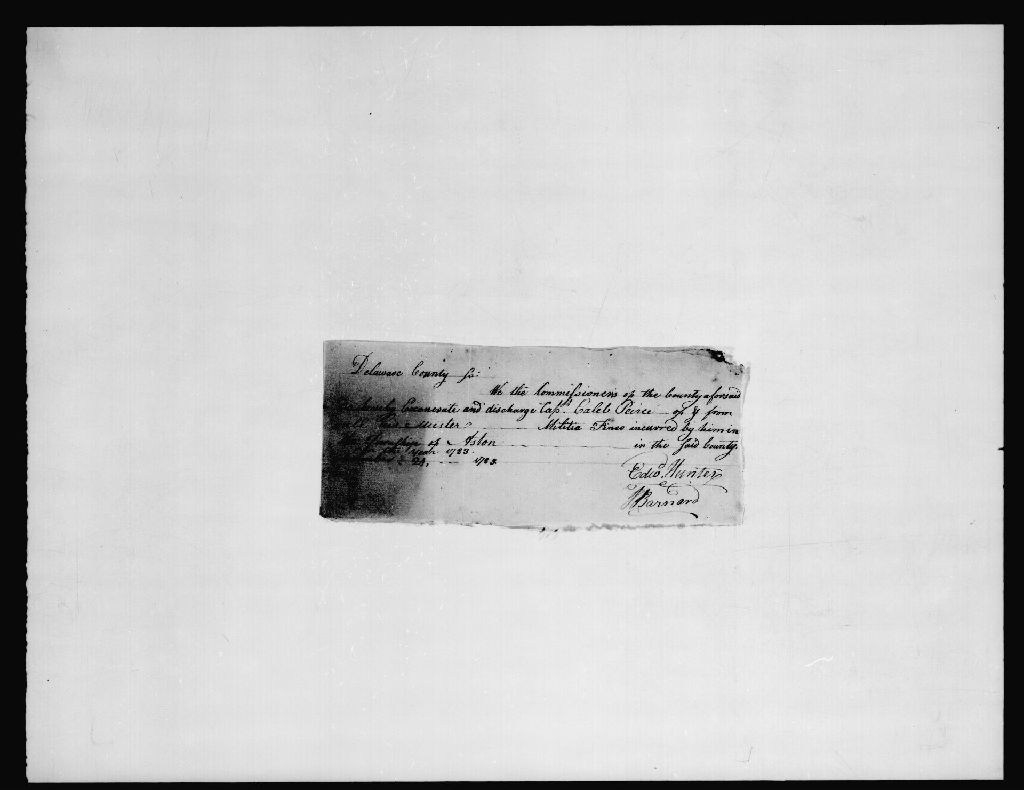 Delaware County ss:
We the Commissioners of the County aforesaid
hereby Exonerate and discharge Capt. Caleb Peirce of & from
Militia Fines incurred by him in
the Township of Aston in the said County
for the year 1783.
24, 1783.
Edwd. Hunter
Barnard